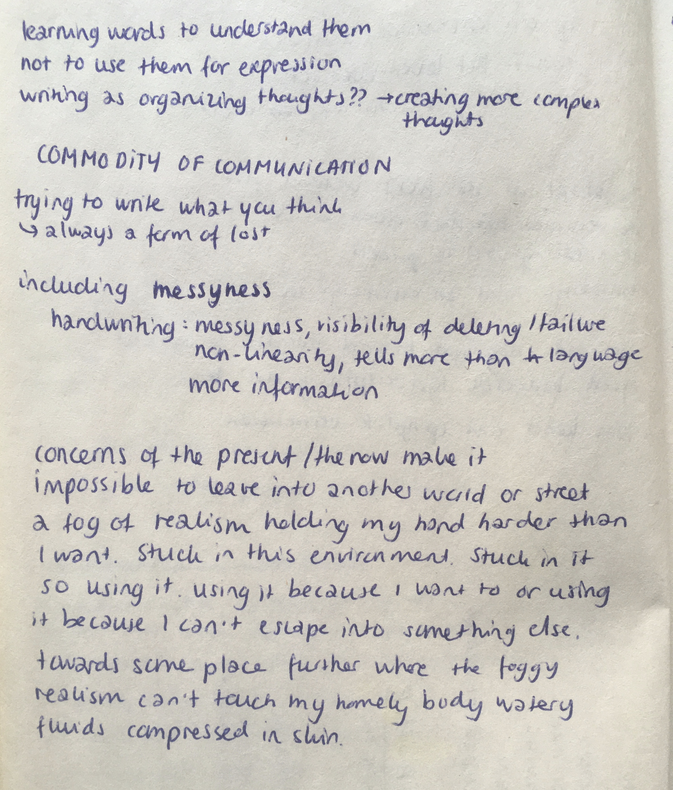 learning words to understand them
not to use them for expression
writing as organizing thoughts?? →creating more complex
thoughts
COMMODITY OF COMMUNICATION
trying to write what you think
↳ always a form of lost
including messyness
handwriting: messyness, visibility of deleting / failure
non-linearity, tells more than language
more information
concerns of the present / the now make it
impossible to leave into another world or street
a fog of realism holding my hand harder than
I want. Stuck in this environment. Stuck in it
so using it. using it because I want to or using
it because I can't escape into something else.
towards some place further where the foggy
realism can't touch my homely body watery
fluids compressed in skin.